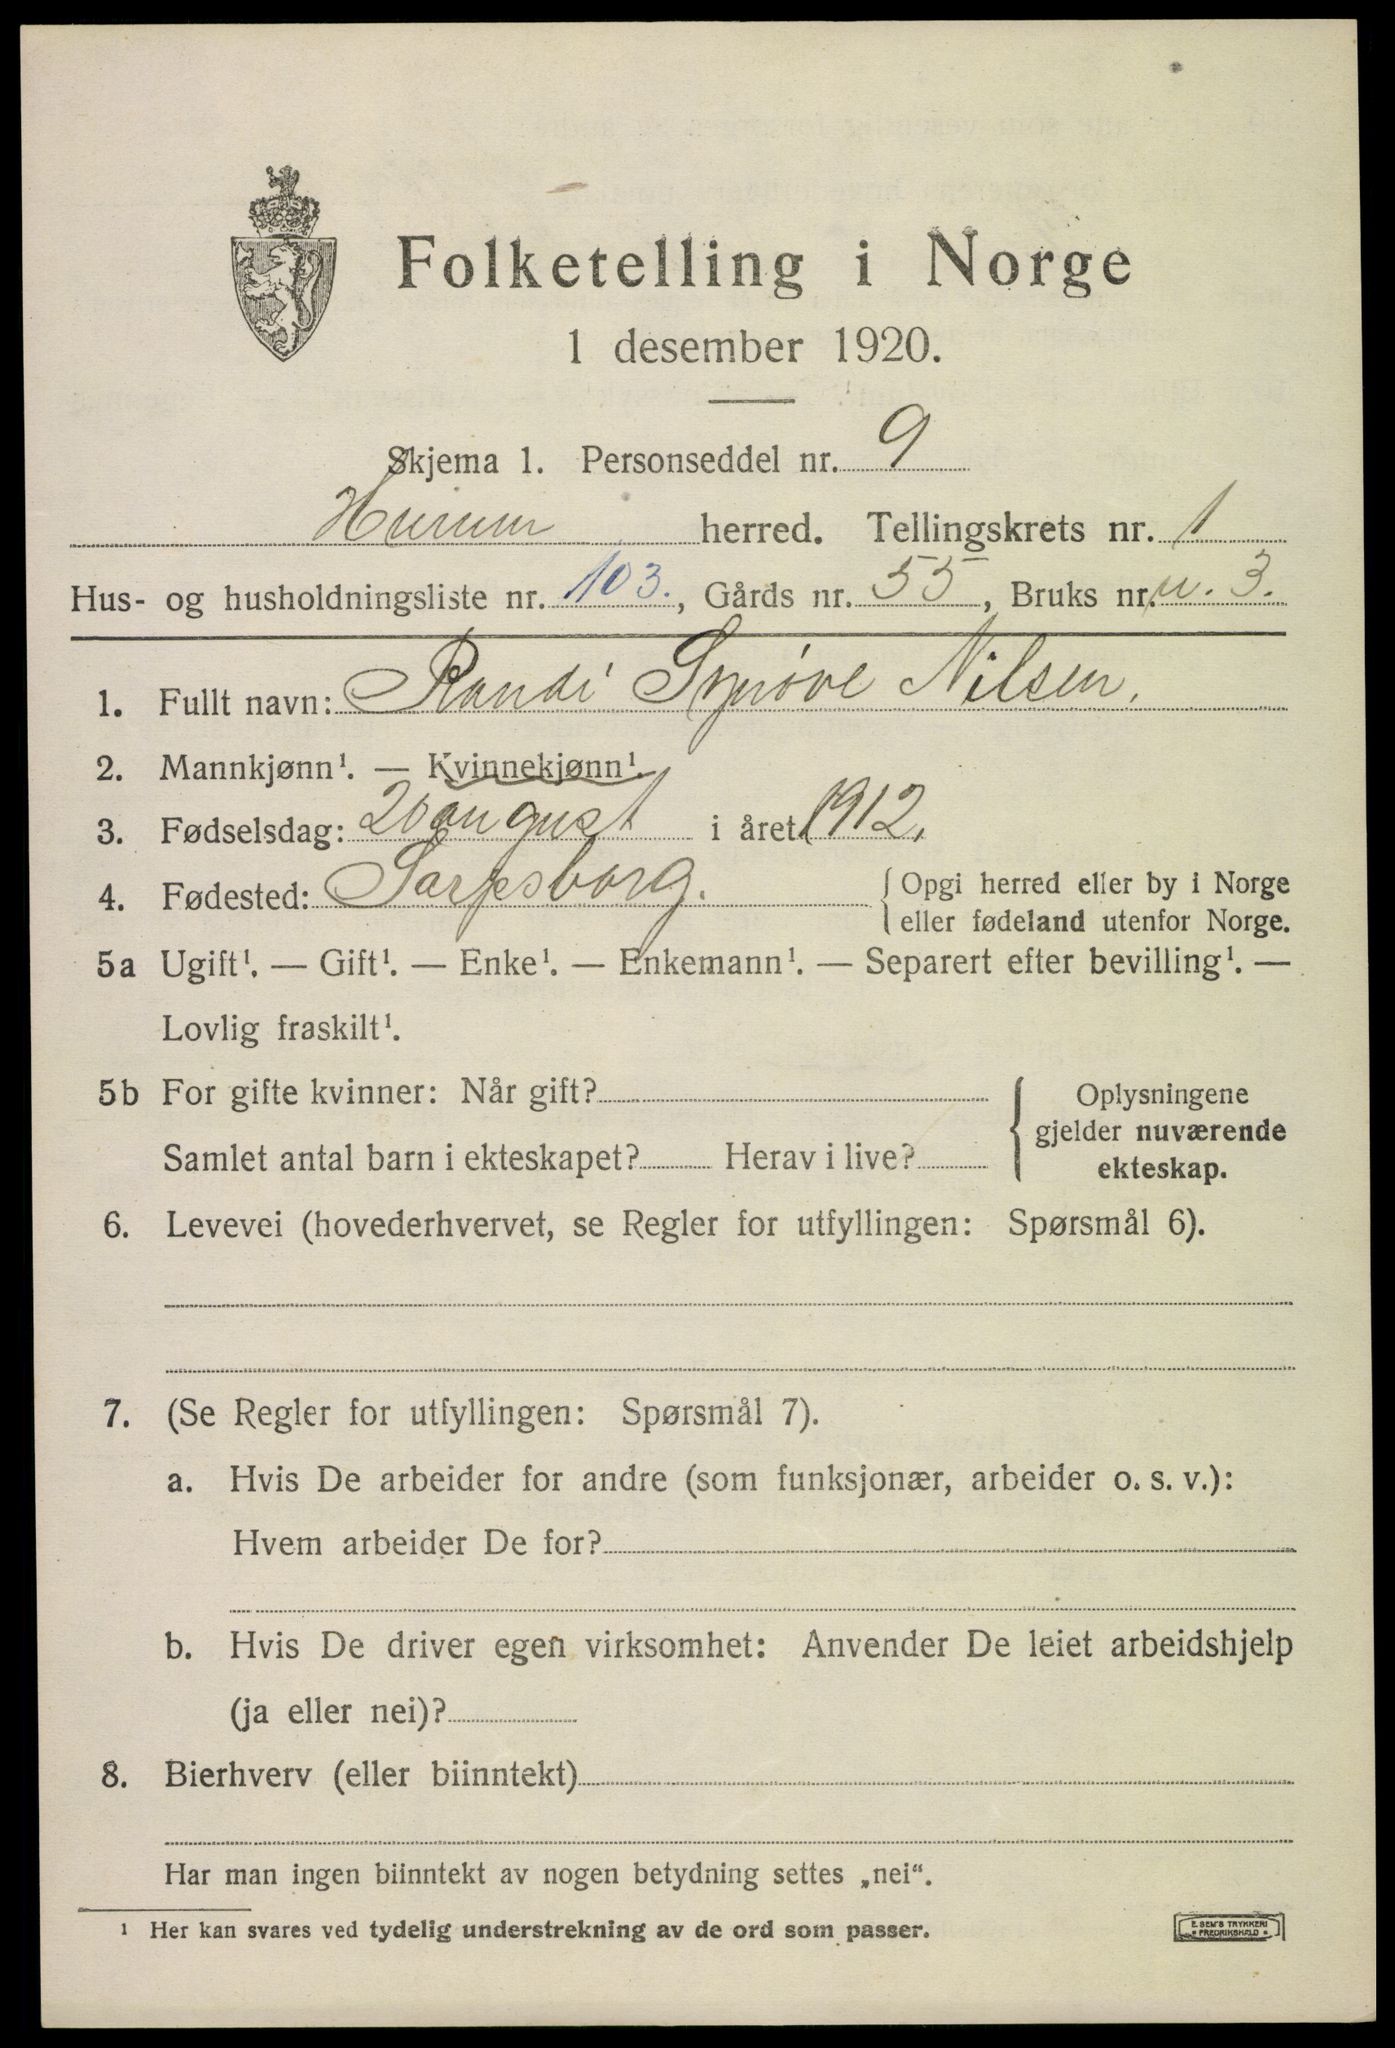 Folketelling i Norge
1 desember 1920.
Skjema 1. Personseddel nr. 9
Hurum herred. Tellingskrets nr. 1
Hus- og husholdningsliste nr. 103., Gårds nr. 55, Bruks nr. u. 3.
1. Fullt navn: Randi Synøve Nilsen.
2. Mannkjønn¹. — Kvinnekjønn¹.
3. Fødselsdag: 20 august i året 1912.
4. Fødested: Sarpsborg. { Opgi herred eller by i Norge
eller fødeland utenfor Norge.
5a Ugift¹. — Gift¹. — Enke¹. — Enkemann¹. — Separert efter bevilling¹. —
Lovlig fraskilt¹.
5b For gifte kvinner: Når gift? { Oplysningene
gjelder nuværende
Samlet antal barn i ekteskapet? Herav i live? ekteskap.
6. Levevei (hovederhvervet, se Regler for utfyllingen: Spørsmål 6).
7. (Se Regler for utfyllingen: Spørsmål 7).
a. Hvis De arbeider for andre (som funksjonær, arbeider o. s. v.):
Hvem arbeider De for?
b. Hvis De driver egen virksomhet: Anvender De leiet arbeidshjelp
(ja eller nei)?
8. Bierhverv (eller biinntekt)
Har man ingen biinntekt av nogen betydning settes „nei“.
¹ Her kan svares ved tydelig understrekning av de ord som passer.
E. SEM'S TRYKKERI
FREDRIKSHALD